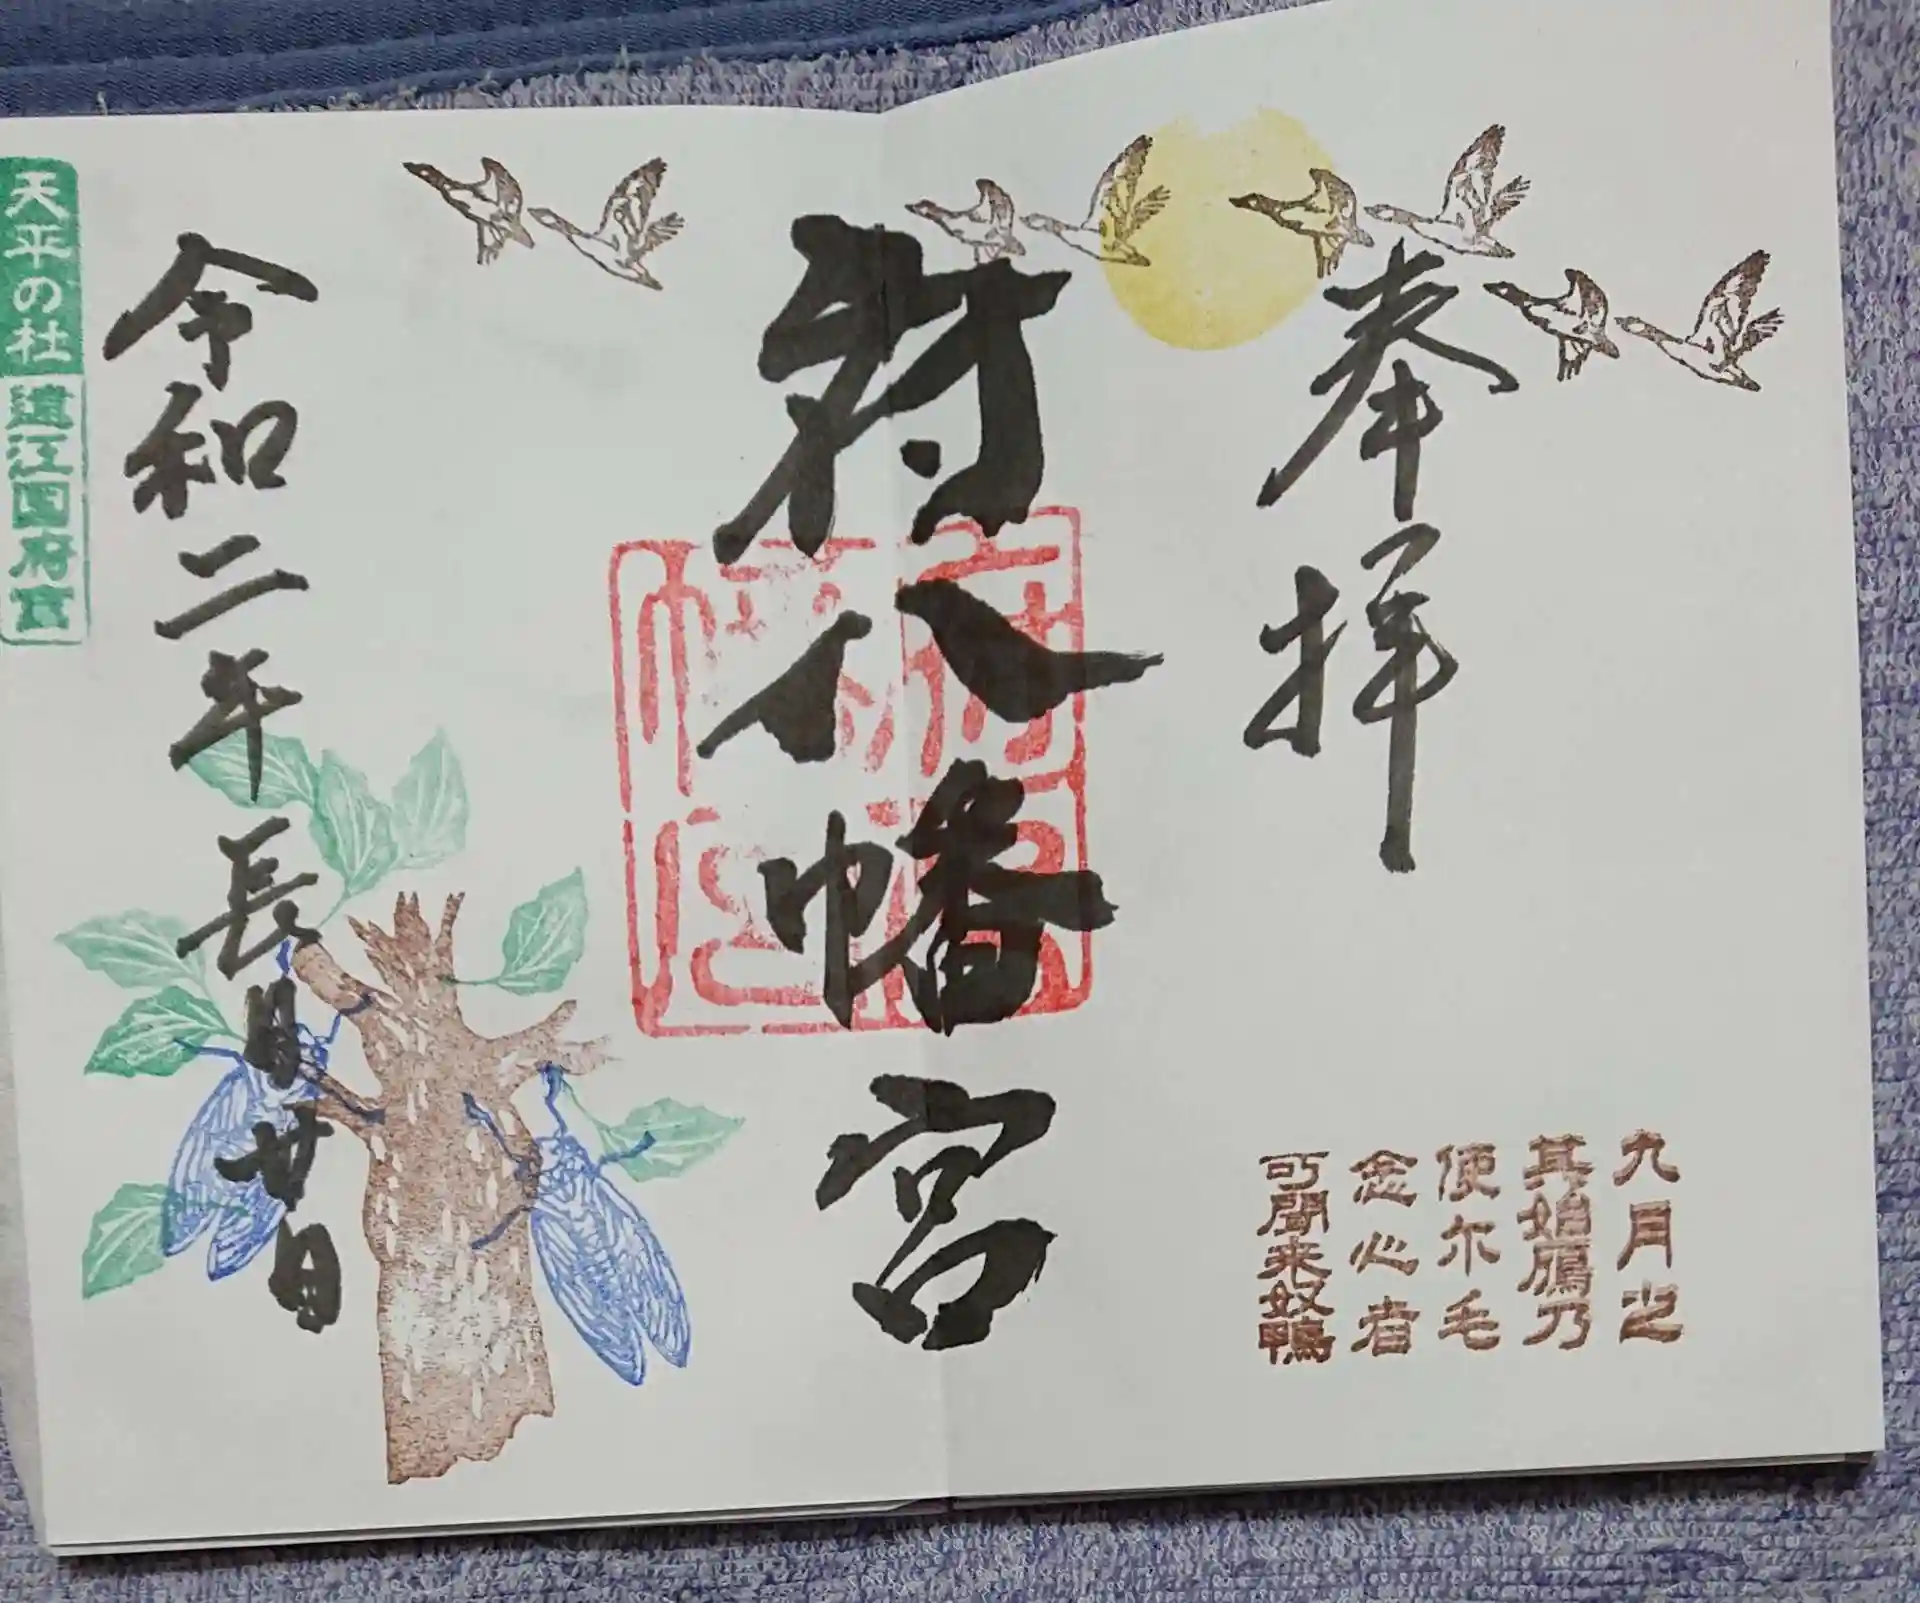 奉拝
九月之
其始鴈乃
使尓毛
念心者
可聞来奴鴨
府八幡宮
令和二年長月廿日
天平の杜
遠江国府宮